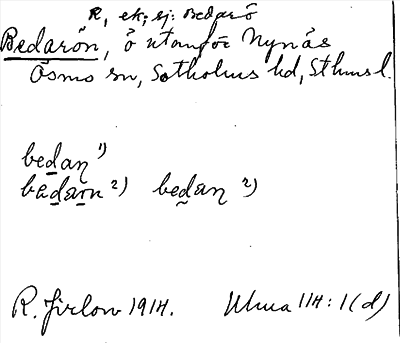 R, ek; sj: Bedarö
Bedarön, ö utanför Nynäs
Ösmo sn, Sotholms hd, Sthms l.
bedaŋ 1)
bedarön 2) bedaŋ 2)
R. Jirlow 1914. 114:1(d)